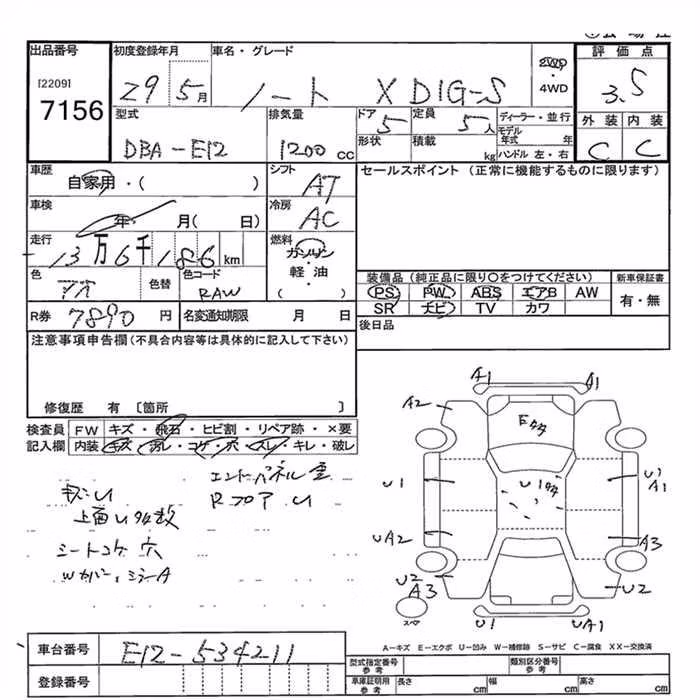 出品番号
[2209]
7156
初度登録年月
29 5月
車名・グレード
ノート X DIG-S
2WD
・
4WD
評価点
3.5
外装 内装
C C
型式
DBA-E12
排気量
1200 CC
ドア
5
定員
5人
形状
積載
kg
ディーラー・並行
モデル年式 年
ハンドル 左・右
車歴
自家用・( )
シフト
AT
セールスポイント (正常に機能するものに限ります)
車検
年 月( 日)
冷房
AC
走行
13万6千186km
燃料
ガソリン
軽油
・
( )
色
色替
色コード
RAW
装備品 (純正品に限り○をつけてください)
PS PW ABS エアB AW
SR ナビ TV カワ
新車保証書
有・無
R券 7890円
名変通知期限 月 日
後日品
注意事項申告欄 (不具合内容等は具体的に記入して下さい)
修復歴 有 〔箇所 〕
検査員記入欄
FW キズ・飛石・ヒビ割・リペア跡・×要
内装 キズ・汚レ・コゲ・穴・スレ・キレ・破レ
エンドパネル
RフロアU
上面U多数
シートコゲ穴
Wカバー,ミラーA
A1 A1
A2
E多
U1 U1多 U1
A1
UA2 A3
U2
A3
U2
スペア
U1 UA1
A-キズ E-エクボ U-凹み W-補修跡 S-サビ C-腐食 XX-交換済
車台番号
E12-534211
登録番号
型式指定番号
参考
類別区分番号
参考
車庫証明用
参考
長さ cm
幅 cm
高さ cm